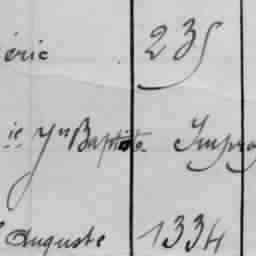 éric 235
ie Jn Baptiste
Auguste 1334